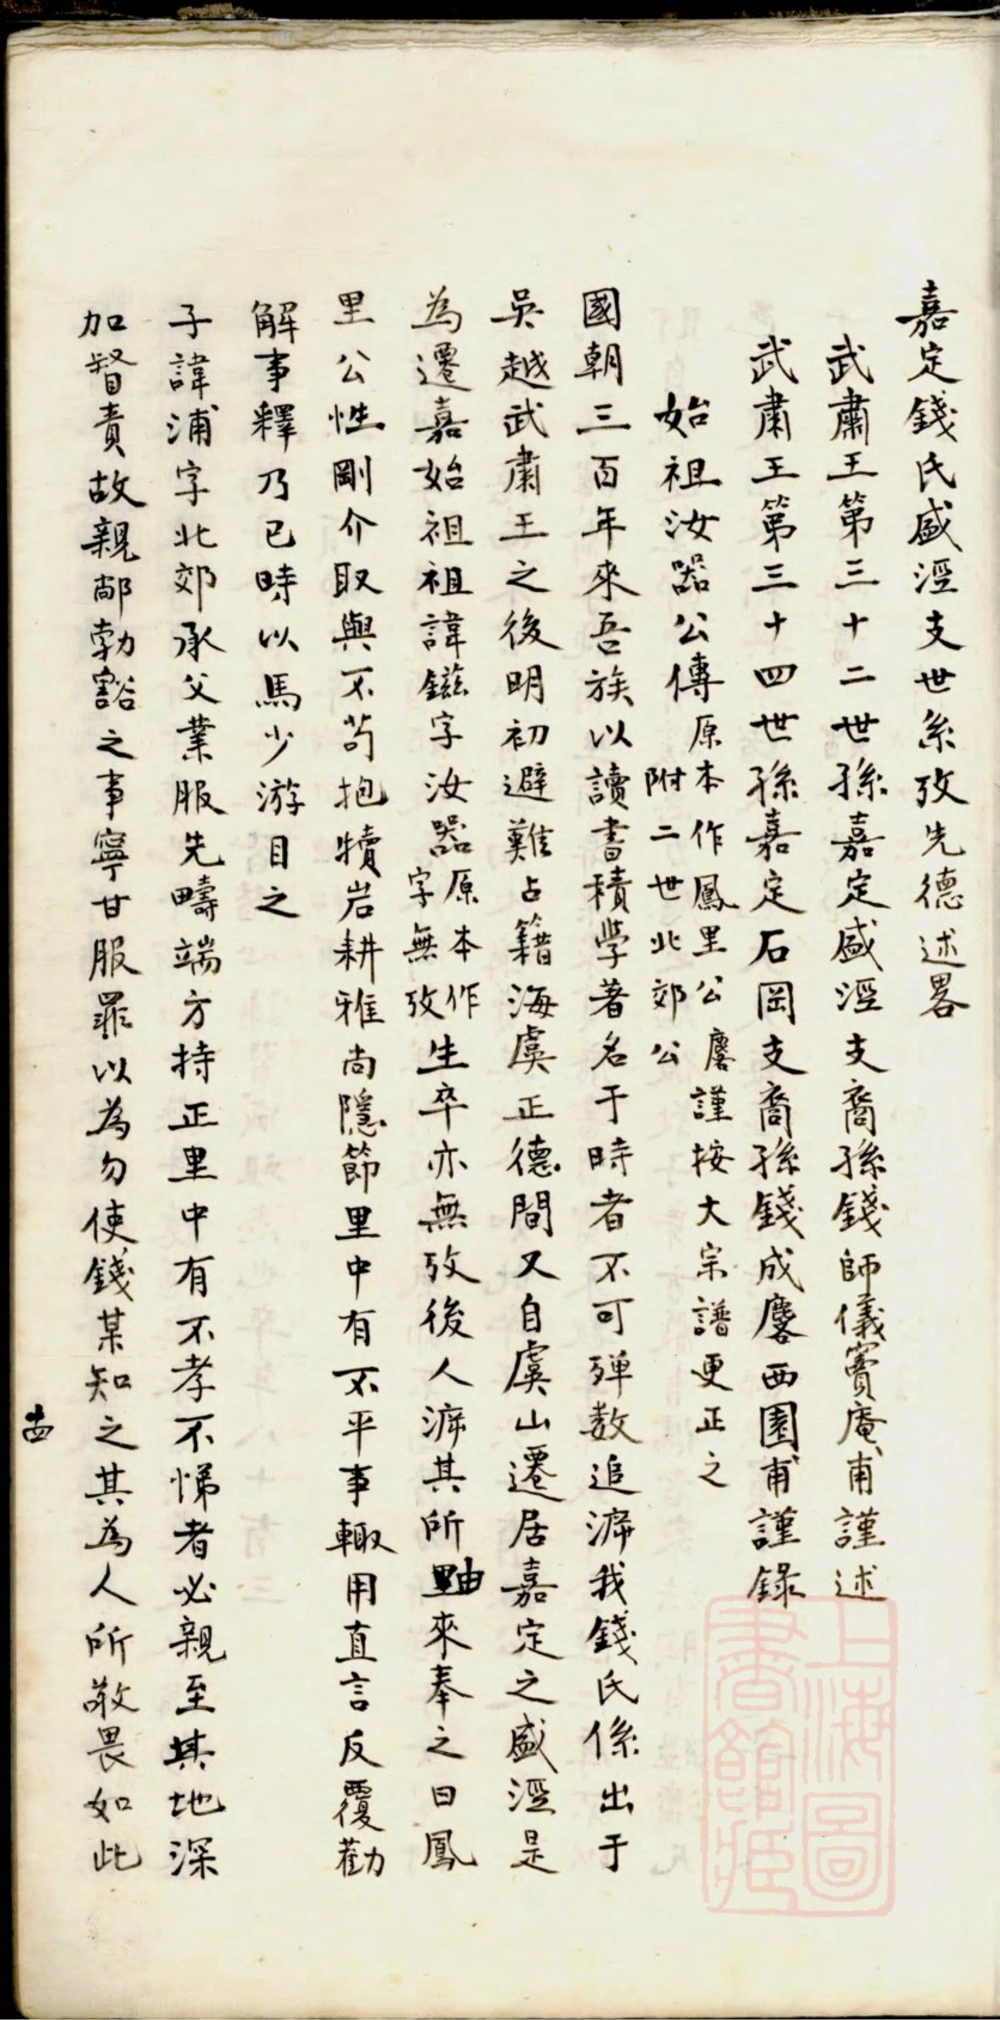 嘉定錢氏盛涇支世系攷先德述畧
武肅王第三十二世孫嘉定盛涇支裔孫錢師儀賓庵甫謹述
武肅王第三十四世孫嘉定石岡支裔孫錢成麐西園甫謹錄
始祖汝器公傳原本作鳳里公麐謹按大宗譜更正之
附二世北郊公
國朝三百年來吾族以讀書積學著名于時者不可殫数追溯我錢氏係出于
吳越武肅王之後明初避難占籍海虞正德間又自虞山遷居嘉定之盛涇是
為遷嘉始祖祖諱鎡字汝器原本作字無攷生卒亦無攷後人溯其所由來奉之曰鳳
里公性剛介取與不苟抱犢岩耕雅尚隱節里中有不平事輙用直言反覆勸
解事釋乃已時以馬少游目之
子諱浦字北郊承父業服先疇端方持正里中有不孝不悌者必親至其地深
加督責故親鄰勃谿之事寧甘服罪以為勿使錢某知之其為人所敬畏如此
上海圖書館藏